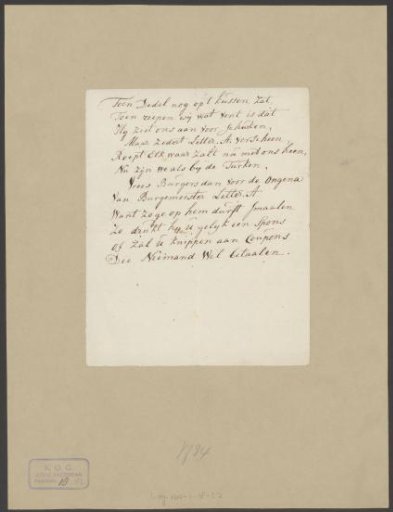 Toen Dedel nog op't kussen zat
Toen riepen wij wat vent is dat
Hy ziet ons aan voor schurken,
Maar zedert Letter A. verscheen
Roept Elk waar zalt nu met ons heen,
Nu zijn we als by de Turken.
Vrees Burgers dan voor de Ongena
Van Burgemeester Letter A
Want zo ge op hem durft smaalen
Zo drukt hy u gelyk een Spons
of zal u knippen aan Coupons
Die Niemand Wel betaalen.
K. O. G.
1794